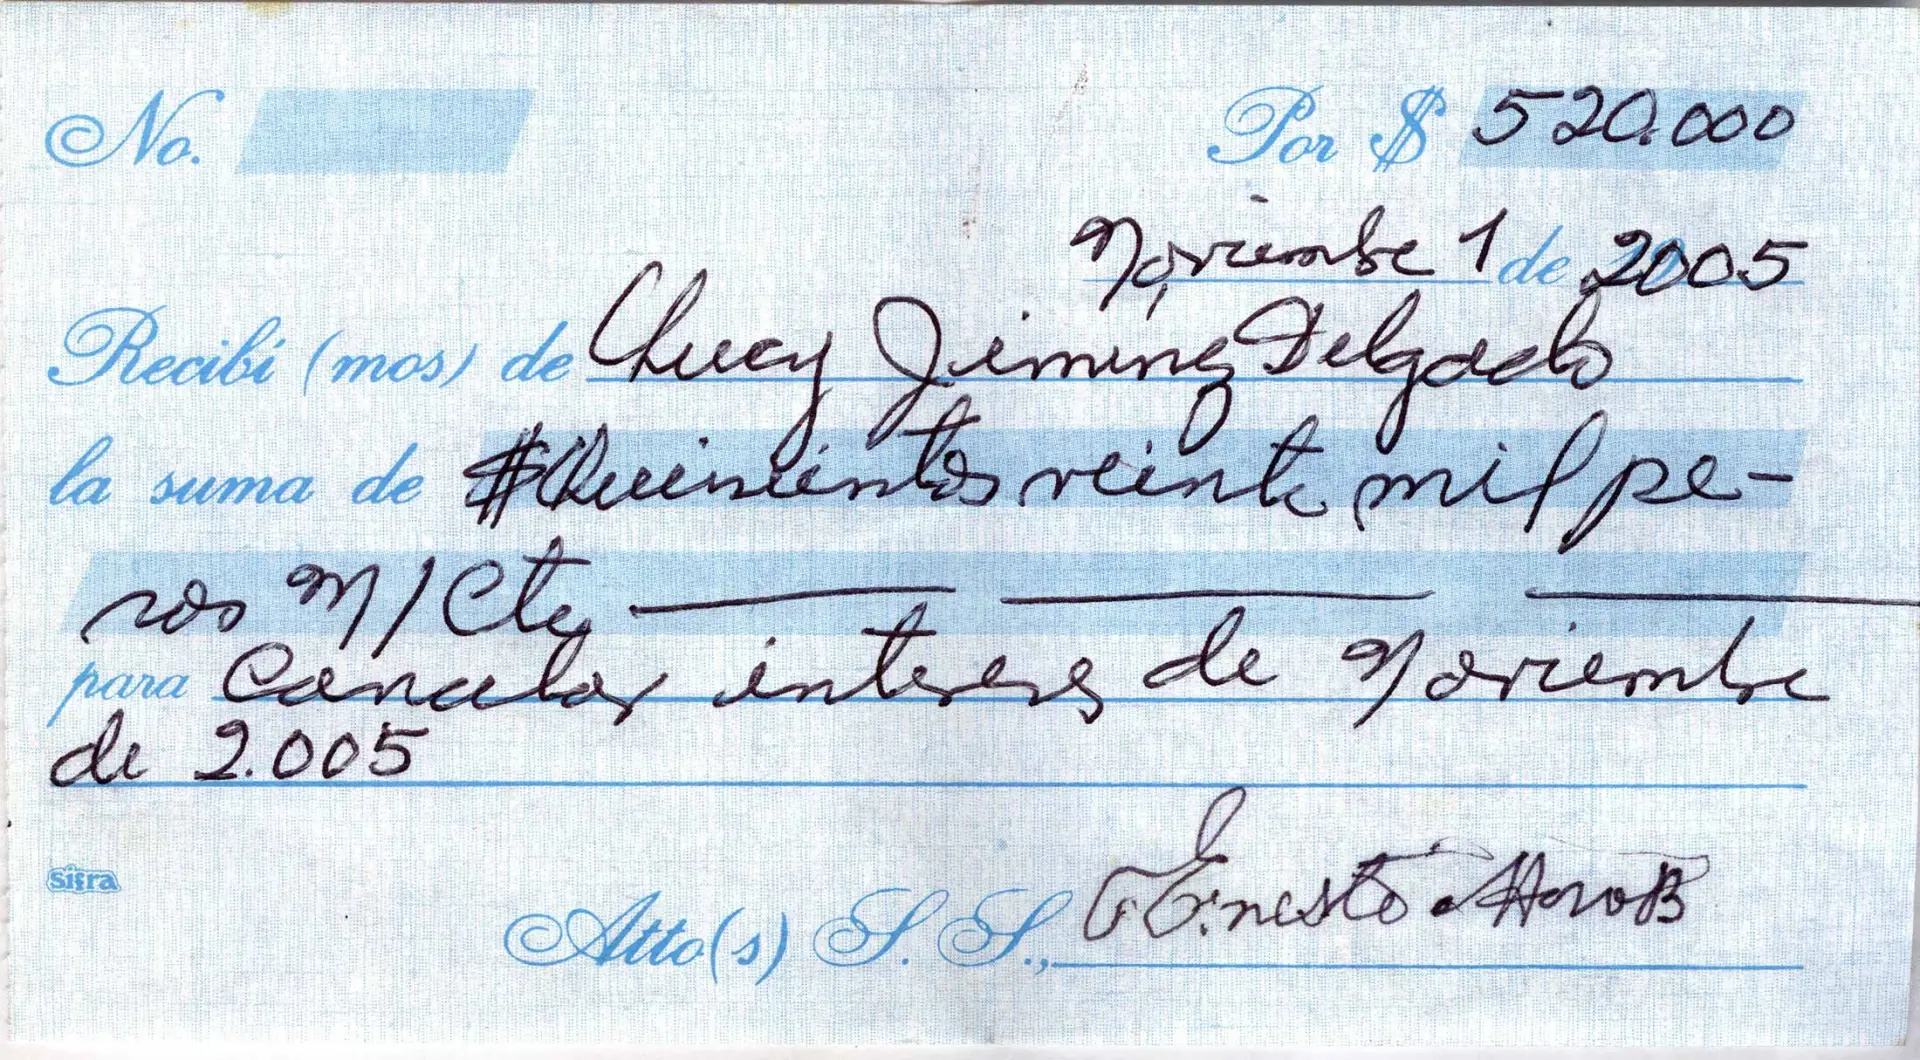 No. Por $ 520.000
Noviembre 1 de 2005
Recibí (mos) de Chucy Jiminez Delgado
la suma de $ Quinientos veinte mil pe-
sos M/Cte
para Cancelar intereses de Noviembre
de 2.005
sifra
Atto(s) S. S., Ernesto